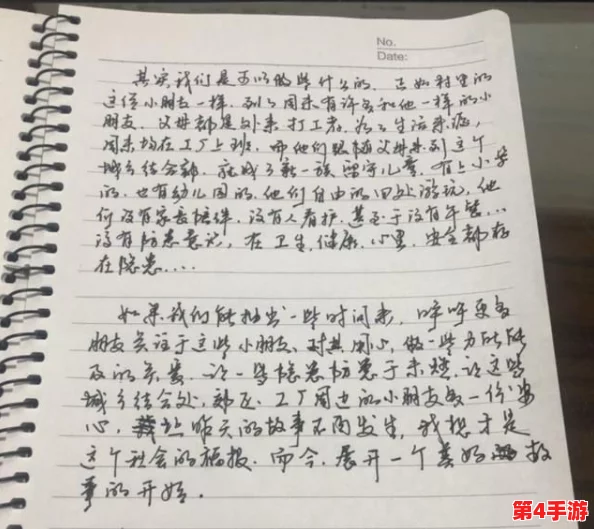 No.
Date:
其实我们是可以做些什么的．正如村里的
这位小朋友一样．到了周末有许多和他一样的小
朋友．父母都是外来打工者．为了生活来源，
周末均在工厂上班．而他们跟随父母来到这个
城乡结合部．就成了新一族留守儿童．有上小学
的．也有幼儿园的．他们自由的四处游玩．他
们没有家长陪伴．没有人看护．甚至于没有午餐...
没有防患意识，在卫生．健康．心里．安全都存
在隐患....
如果我们能抽出一些时间来．呼吁更多
朋友关注于这些小朋友、对其用心，做一些力所能
及的关爱．让一些隐患防患于未燃．让这些
城乡结合处．郊区、工厂周边的小朋友多一份安
心，昨天的故事不再发生，我想才是
这个社会的福报．而今．展开一个美好的故
事的开始．
第4手游